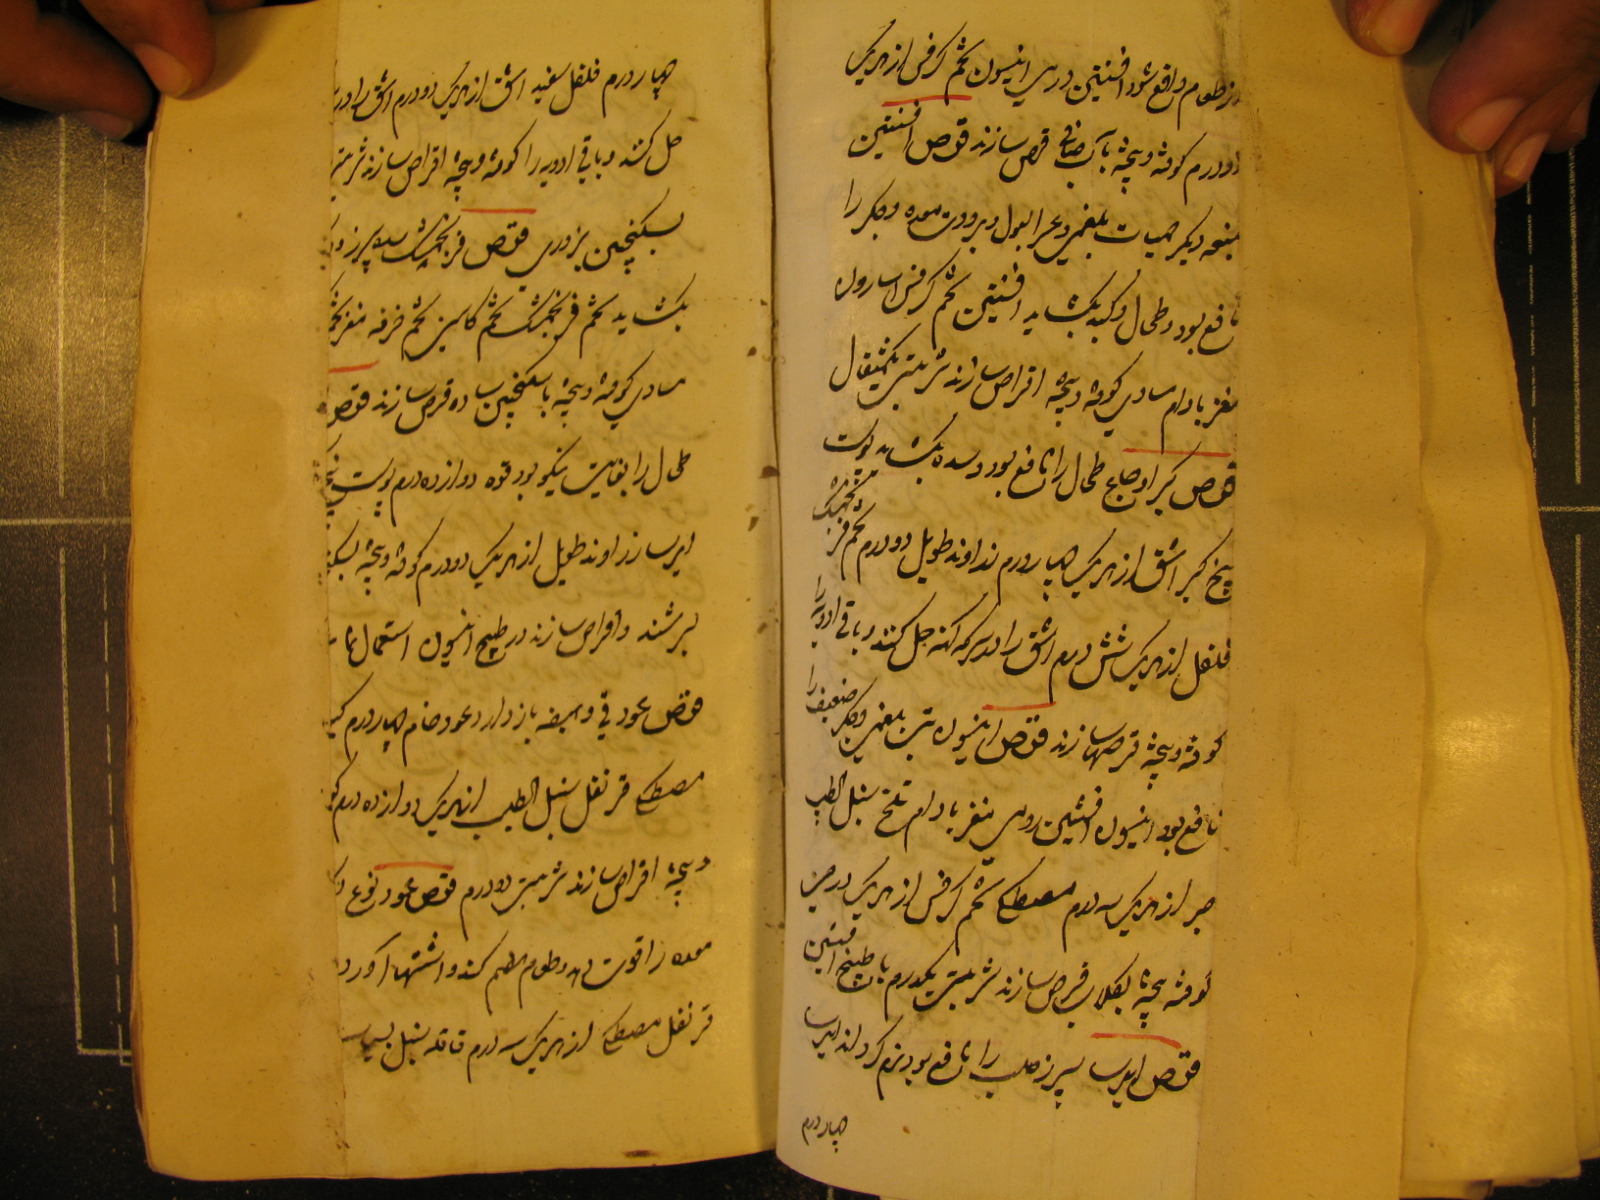 از طعام واقع شود افسنتین رومی انیسون تخم کرفس از هریک
دو درم کوفته و بیخته بآب صافی قرص سازند قرص افسنتین
دیگر حمیات بلغمی و عسر البول و برودت معده و جگر را
نافع بود و طحال و کبد بکشاید افسنتین تخم کرفس اسارون
مغز بادام مساوی کوفته و بیخته اقراص سازند شربتی یکمثقال
قرص کبر اوجاع طحال را نافع بود و سده بکشاید پوست
بیخ کبر اشق از هریک چهار درم زراوند طویل دو درم تخم فرنجمشک
فلفل از هریک شش درم اشق را در سرکه کهنه حل کنند و باقی ادویه را
کوفته و بیخته قرصها سازند قرص انیسون تب بلغمی و جگر ضعیف را
نافع بود انیسون افسنتین رومی مغز بادام تلخ سنبل الطیب
صبر از هریک سه درم مصطکی تخم کرفس از هریک درمی
کوفته بیخته بگلاب قرص سازند شربتی یکدرم با طبیخ افسنتین
قرص ایرسا سپرز صلب را نافع بود ایرسا
چهار درم
چهار درم فلفل سفید اشق از هریک دو درم اشق را در
حل کنند و باقی ادویه را کوفته و بیخته اقراص سازند شربتی
بسکنجبین بزوری قرص فرنجمشک سده سپرز و
بکشاید تخم فرنجمشک تخم کاسنی تخم خرفه مغز تخم
مساوی کوفته و بیخته با سکنجبین ساده قرص سازند قرص
طحال را بغایت نیکو بود فوه دوازده درم پوست بیخ
ایرسا زراوند طویل از هریک دو درم کوفته و بیخته
بسرشند و اقراص سازند در طبیخ انیسون استعمال
قرص عود قی و هیضه باز دارد عود خام چهار درم
مصطکی قرنفل سنبل الطیب از هریک دوازده درم
و بیخته اقراص سازند شربتی دو درم قرص عود نوع
معده را قوت دهد و طعام هضم کند و اشتها آورد
قرنفل مصطکی از هریک سه درم قاقله سنبل بسباسه